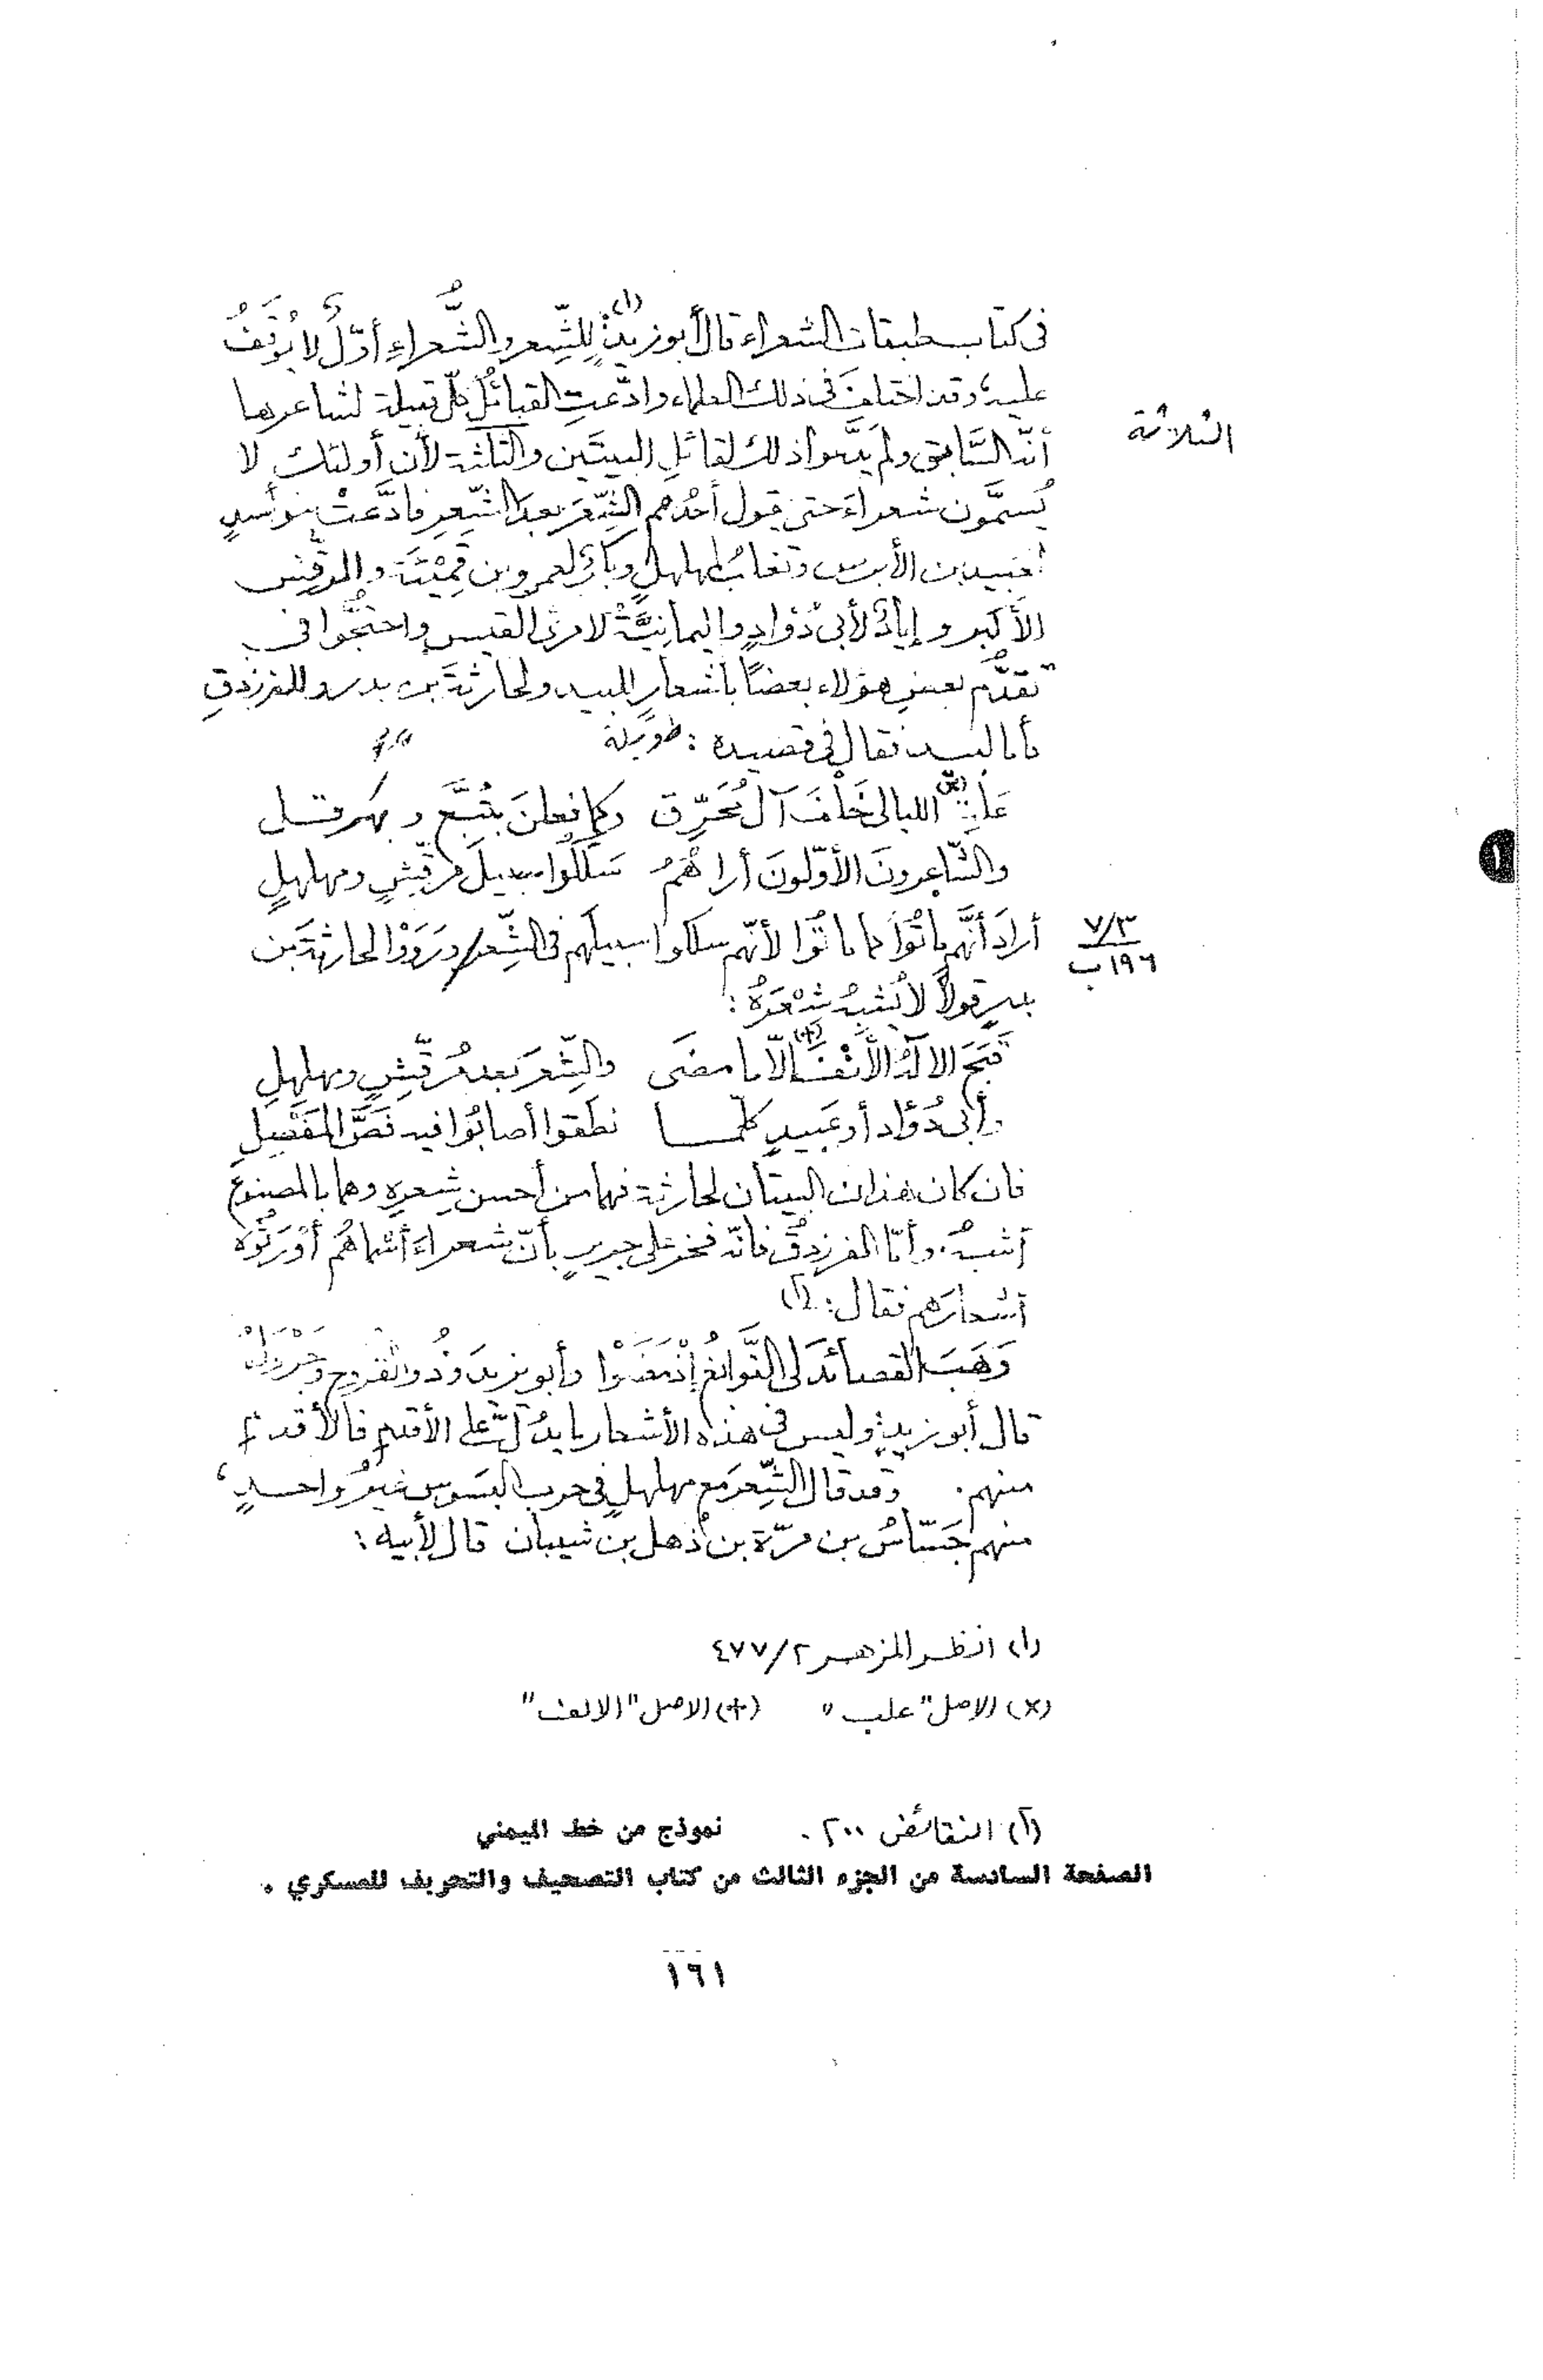 فى كتاب طبقات الشعراء قال أبو زيدٍ (١) لِلشِّعر والشُّعراءِ أوّلٌ لا يُوقَفُ
عليه، وقد اختلفَ فى ذلك العلماء وادّعتِ القبائلُ كلّ قبيلة لشاعرها
الثلاثة
أنّه السَّابق ولم يَدَّعوا ذلك لقائلِ البيتَين والثلاثة لأن أولئك لا
يُسمَّون شعراءَ حتى يقول أحدُهم الشِّعَر بعد الشِّعرِ فادَّعتْ بنو أسدٍ
لعَبيد بن الأبرص وتغلبُ لمهلهلٍ وبكرٌ لعمرو بن قَمِيْئَة والمرقّش
الأكبر وإيادٌ لأبى دُؤادٍ واليمانِيَّةُ لامرئ القيس واحتجُّوا فى
تقدُّم بعضِ هؤلاء بعضًا بأشعارِ للبيد ولحارثةَ بن بدر وللفرزدقِ
فأما لبيد فقال فى قصيده : طويلة
غلبَ (×) الليالى خَلْفَ آل مُحَرِّق وكما فعلنَ بتُبَّعٍ وبهرقل
والشّاعرونَ الأوّلونَ أراهُمُ سَلَكُوا سبيلَ مُرقِّشٍ ومهلهلٍ
٧/٣
١٩٦ ب
أرادَ أنَّهم ماتُوا كما ماتُوا لأنّهم سلكوا سبيلَهم فى الشِّعر/ورَوَوْا لحارثةَ بن
بدرٍ قولاً لا يُشْبِهُ شِعْرَهُ :
قَبَحَ الالهُ (+) إلّا ما مضَى والشِّعرَ بعد مُرقّشٍ ومهلهلِ
وأبى دُؤاد أو عَبيدٍ كلّمـــا نطقوا أصابُوا فيه نَصَّ المَفصِلِ
فان كان هذان البيتان لحارثة فهما من أحسن شِعرِهِ وهما بالمصنوع
أشبهُ. وأمّا الفرزدقُ فانّه فخر على جريرٍ بأنّ شعراءَ أسْماهُم أوْرَثُوه
أشعارَهم فقال : (٢)
وَهَبَ القصائدَ لى النَّوابغُ إذْ مَضَوْا وأبو يزيدَ وذُو القروحِ وجَرْوَلُ
قال أبو زيدٍ وليس فى هذه الأشعار ما يدُلُّ على الأقدمِ فالأقدمِ
منهم. وقد قال الشِّعرَ مع مهلهلٍ فى حرب البَسوس غيرُ واحـــدٍ،
منهم جَسّاسُ بن مرّة بن ذُهل بن شيبان قال لأبيه :
(١) انظـر المزهـر ٢/٤٧٧
(×) الاصل "علب" (+) الاصل "الالف"
(٢) النقائض ٢٠٠ . نموذج من خط الميمني
الصفحة السادسة من الجزء الثالث من كتاب التصحيف والتحريف للعسكري .
١٦١